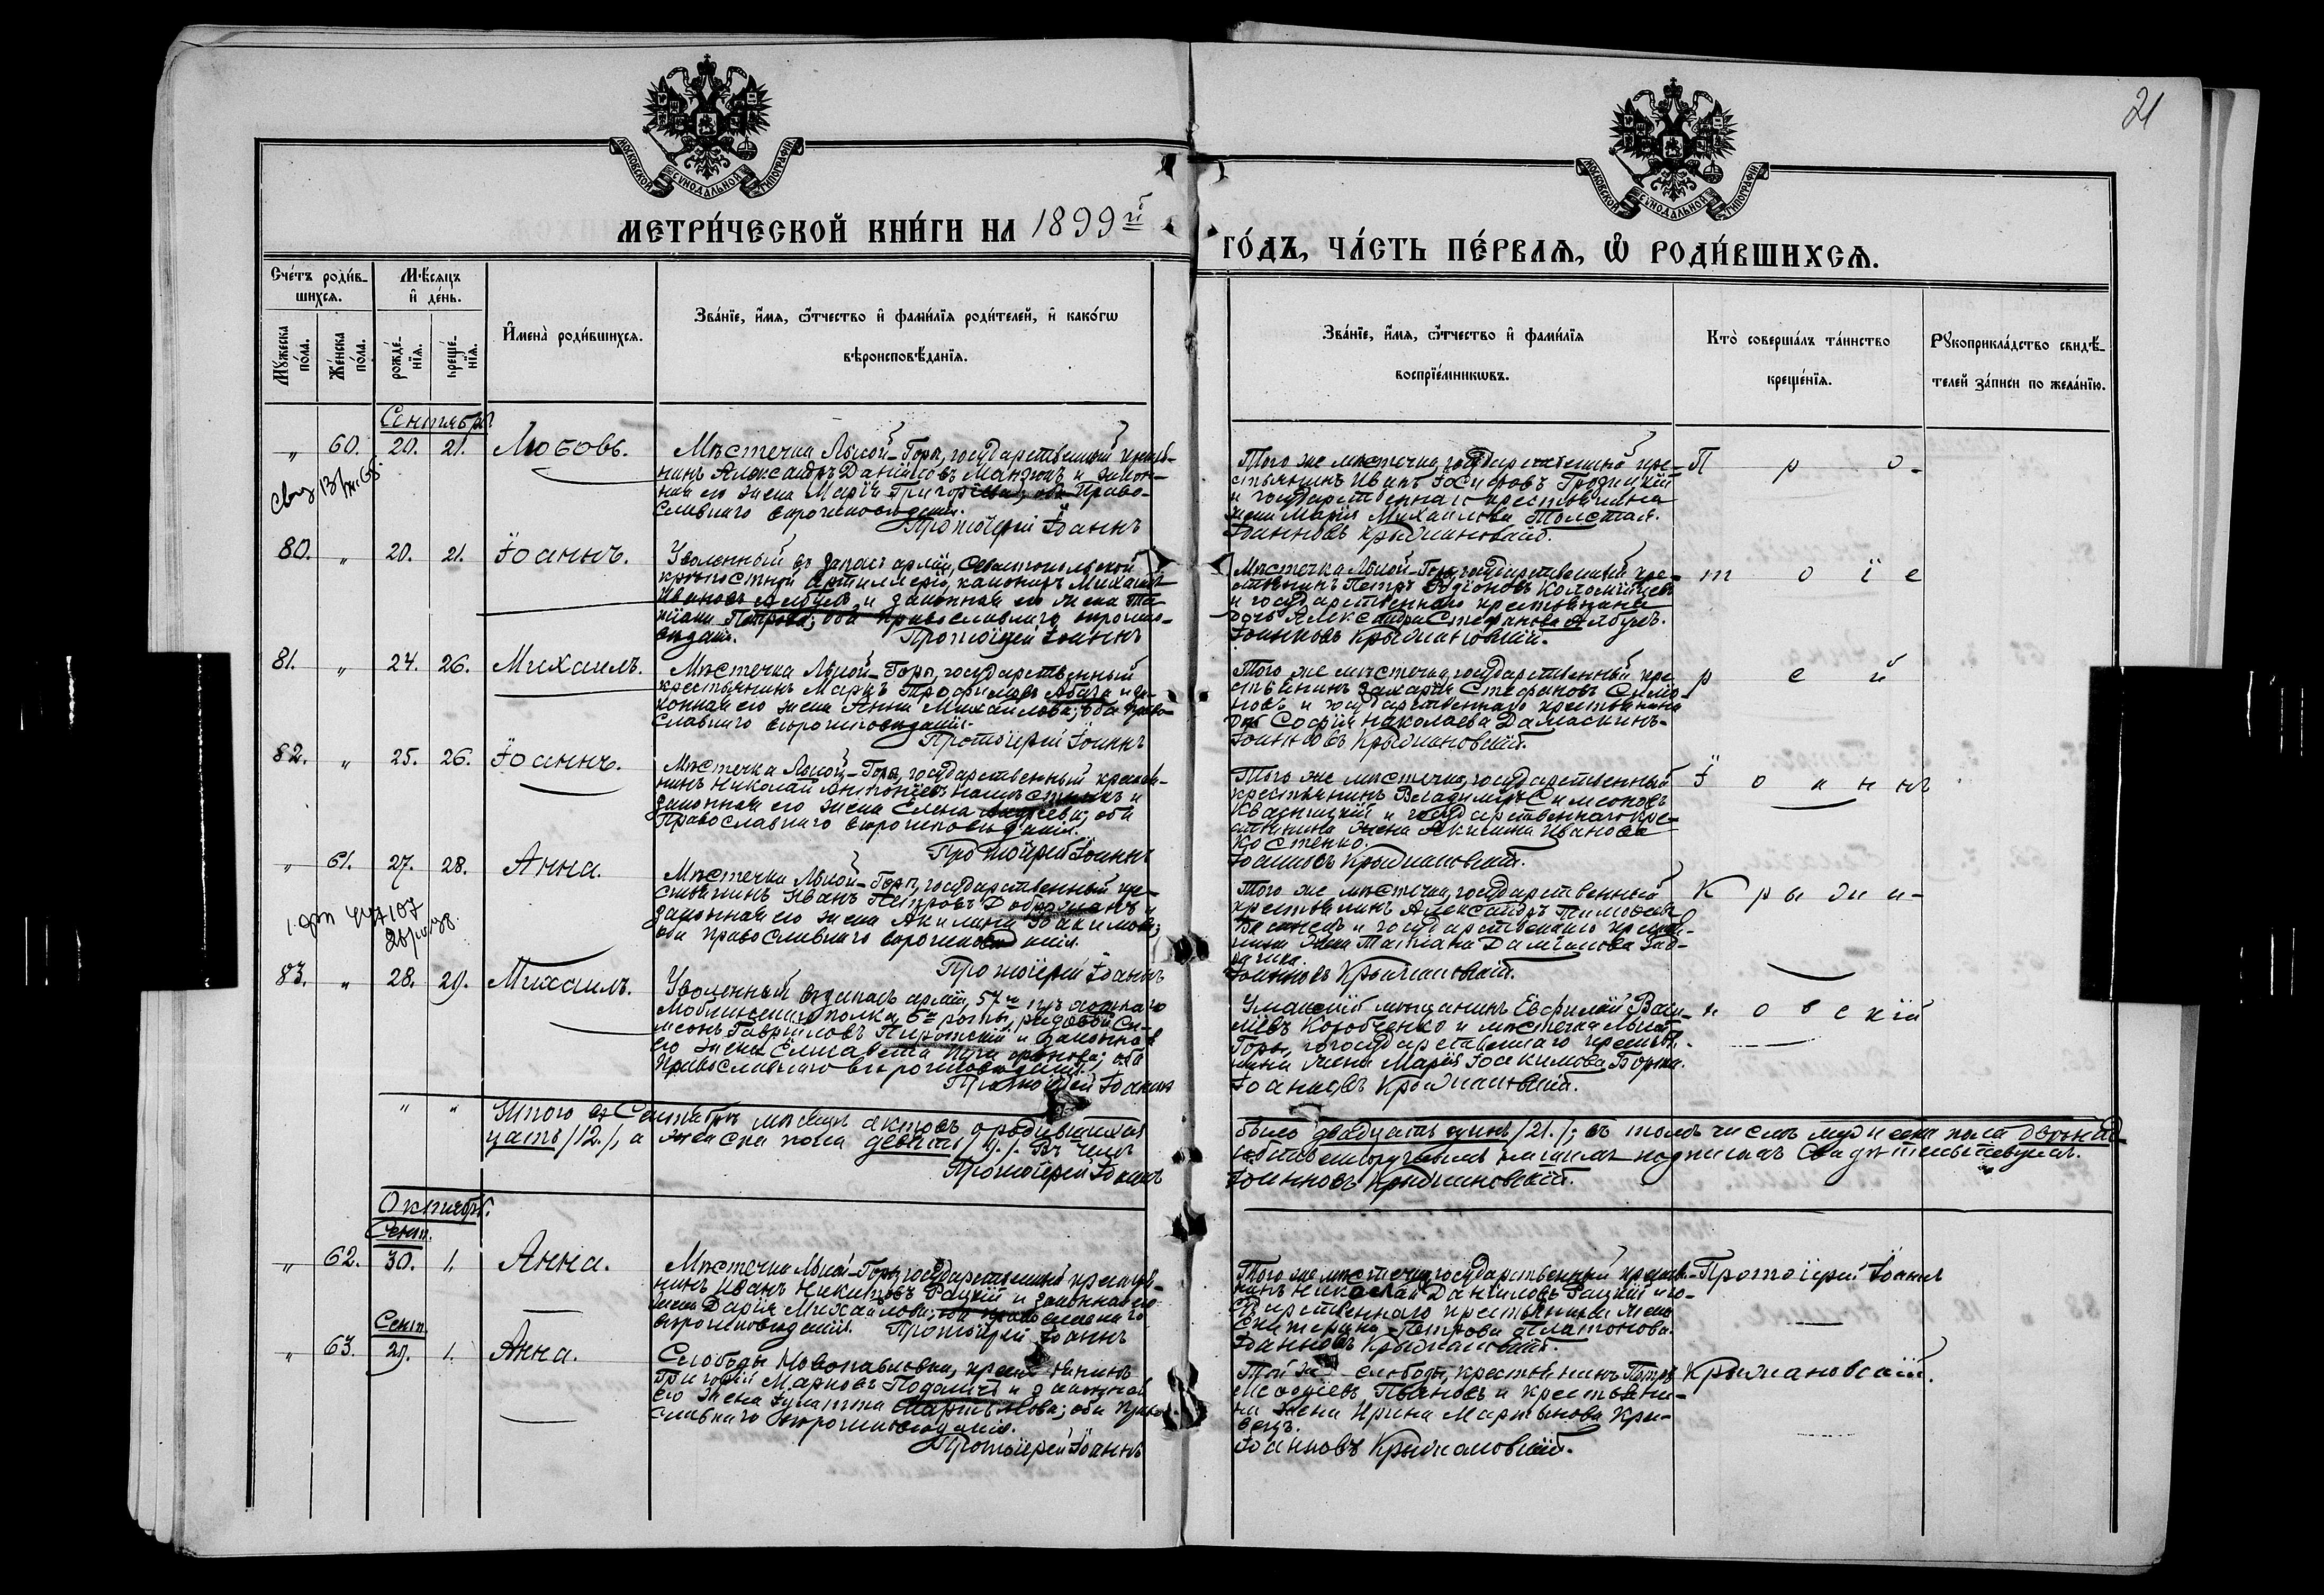 21
МОСКОВСКОЙ СѴНОДАЛЬНОЙ ТИПОГРАФІИ
МОСКОВСКОЙ СѴНОДАЛЬНОЙ ТИПОГРАФІИ
МЕТРИ́ЧЕСКОЙ КНИ́ГИ НА 1899 й
ГО́ДЪ, ЧА́СТЬ ПЕ́РВАѦ, Ѡ РОДИ́ВШИХСѦ.
Сче́тъ роди́в-
шихсѧ.
Мѣ́сѧцъ
и де́нь.
Мꙋ́жеска по́ла.
Же́нска по́ла.
рожде́-
нїѧ.
креще́-
нїѧ.
И҆мена̀ роди́вшихсѧ.
Зва́нїе, и҆́мѧ, ѻ҆́тчество и҆ фами́лїѧ роди́телей, и҆ како́гѡ
вѣроисповѣ́данїѧ.
Зва́нїе, и҆́мѧ, ѻ҆́тчество и҆ фами́лїѧ
воспрїе́мникѡвъ.
Кто̀ соверша́лъ та́инство
креще́нїѧ.
Рꙋкоприкла́дство свидѣ́-
телей за́писи по жела́нїю.
Сентябрь
„ 60. 20. 21. Любовь.
Мѣстечка Лысой-Горы, государственный крестья-
нинъ Александръ Даніиловъ и закон-
ная его жена Марія Григоріева; оба Право-
славнаго вѣроисповѣданія.
Протоіерей Іоаннъ
Того же мѣстечка, государственный кре-
стьянинъ Иванъ Іосифовъ Гродицкій
и государственнаго крестьянина
жена Марія Михаилова Толстая.
Іоанновъ Крыжановскій.
П р о-
80. „ 20. 21. Іоаннъ.
Уволенный въ запасъ арміи, Севастопольской
крѣпостной артиллеріи, канониръ Михаилъ
Ивановъ Албулъ и законная его жена Та-
тіана Петрова; оба православнаго вѣроиспо-
вѣданія.
Протоіерей Іоаннъ
Мѣстечка Лысой-Горы, государственный кре-
стьянинъ Петръ Коломійцевъ
и государственнаго крестьянина
дочь Александра Стефанова Албулъ.
Іоанновъ Крыжановскій.
т о і е
81. „ 24. 26. Михаилъ.
Мѣстечка Лысой-Горы, государственный
крестьянинъ Маркъ Трофимовъ Абаза и за-
конная его жена Анна Михаилова; оба право-
славнаго вѣроисповѣданія.
Протоіерей Іоаннъ
Того же мѣстечка, государственный кре-
стьянинъ Захарія Стефановъ Симо-
новъ и государственнаго крестьянина
дочь Софія Николаева Дамаскинъ.
Іоанновъ Крыжановскій.
р е й
82. „ 25. 26. Іоаннъ.
Мѣстечка Лысой-Горы, государственный крестья-
нинъ Николай Антоніевъ Намѣстникъ и
законная его жена Елена; оба
Православнаго вѣроисповѣданія.
Протоіерей Іоаннъ
Того же мѣстечка, государственный
крестьянинъ Владиміръ Симеоновъ
Квасницкій и государственнаго кре-
стьянина жена Акилина Иванова
Костенко.
Іоанновъ Крыжановскій.
І о а н нъ
„ 61. 27. 28. Анна.
Мѣстечка Лысой-Горы, государственный кре-
стьянинъ Иванъ Петровъ и
законная его жена Акилина Іоакимова;
оба православнаго вѣроисповѣданія.
Протоіерей Іоаннъ
Того же мѣстечка, государственный
крестьянинъ Александръ Тимоѳеевъ
и государственнаго крестья-
нина жена Татіана
Іоанновъ Крыжановскій.
К р ы ж а-
83. „ 28. 29. Михаилъ.
Уволенный въ запасъ арміи, 57го пѣхотнаго
Модлинскаго полка, 6й роты, рядовой Си-
меонъ Гавріиловъ Пиротскій и законная
его жена Елисавета; оба
Православнаго вѣроисповѣданія.
Протоіерей Іоаннъ
Уманскій мѣщанинъ Евфимій Васи-
ліевъ Коробченко и мѣстечка Лысой-
Горы, государственнаго крестья-
нина жена Марія Іоакимова
Іоанновъ Крыжановскій.
н о в с кій
„ „ Итого въ Сентябрѣ мѣсяцѣ актовъ о родившихся
было двадцать одинъ /21./; въ томъ числѣ мужеска пола двѣнад-
цать /12./, а женска пола девять /9./. Въ чемъ
собственноручнымъ нашимъ подписомъ свидѣтельствуемъ.
Протоіерей Іоаннъ
Іоанновъ Крыжановскій.
Октябрь.
Сент.
„ 62. 30. 1. Анна.
Мѣстечка Лысой-Горы, государственный крестья-
нинъ Иванъ Никитовъ Гацкій и законная его
жена Дарія Михаилова; оба православнаго
вѣроисповѣданія. Протоіерей Іоаннъ
Того же мѣстечка, государственный крестья-
нинъ Николай Даніиловъ Гацкій и го-
сударственнаго крестьянина жена
Екатерина Петрова Платонова.
Іоанновъ Крыжановскій.
Протоіерей Іоаннъ
Сент.
„ 63. 29. 1. Анна.
Слободы Новопавловки, крестьянинъ
Григорій Марковъ и законная
его жена Мартынова; оба Право-
славнаго вѣроисповѣданія.
Протоіерей Іоаннъ
Той же слободы, крестьянинъ Петръ
Меѳодіевъ и крестьяни-
на жена Ирина Мартынова Кра-
вецъ.
Іоанновъ Крыжановскій.
Крыжановскій.